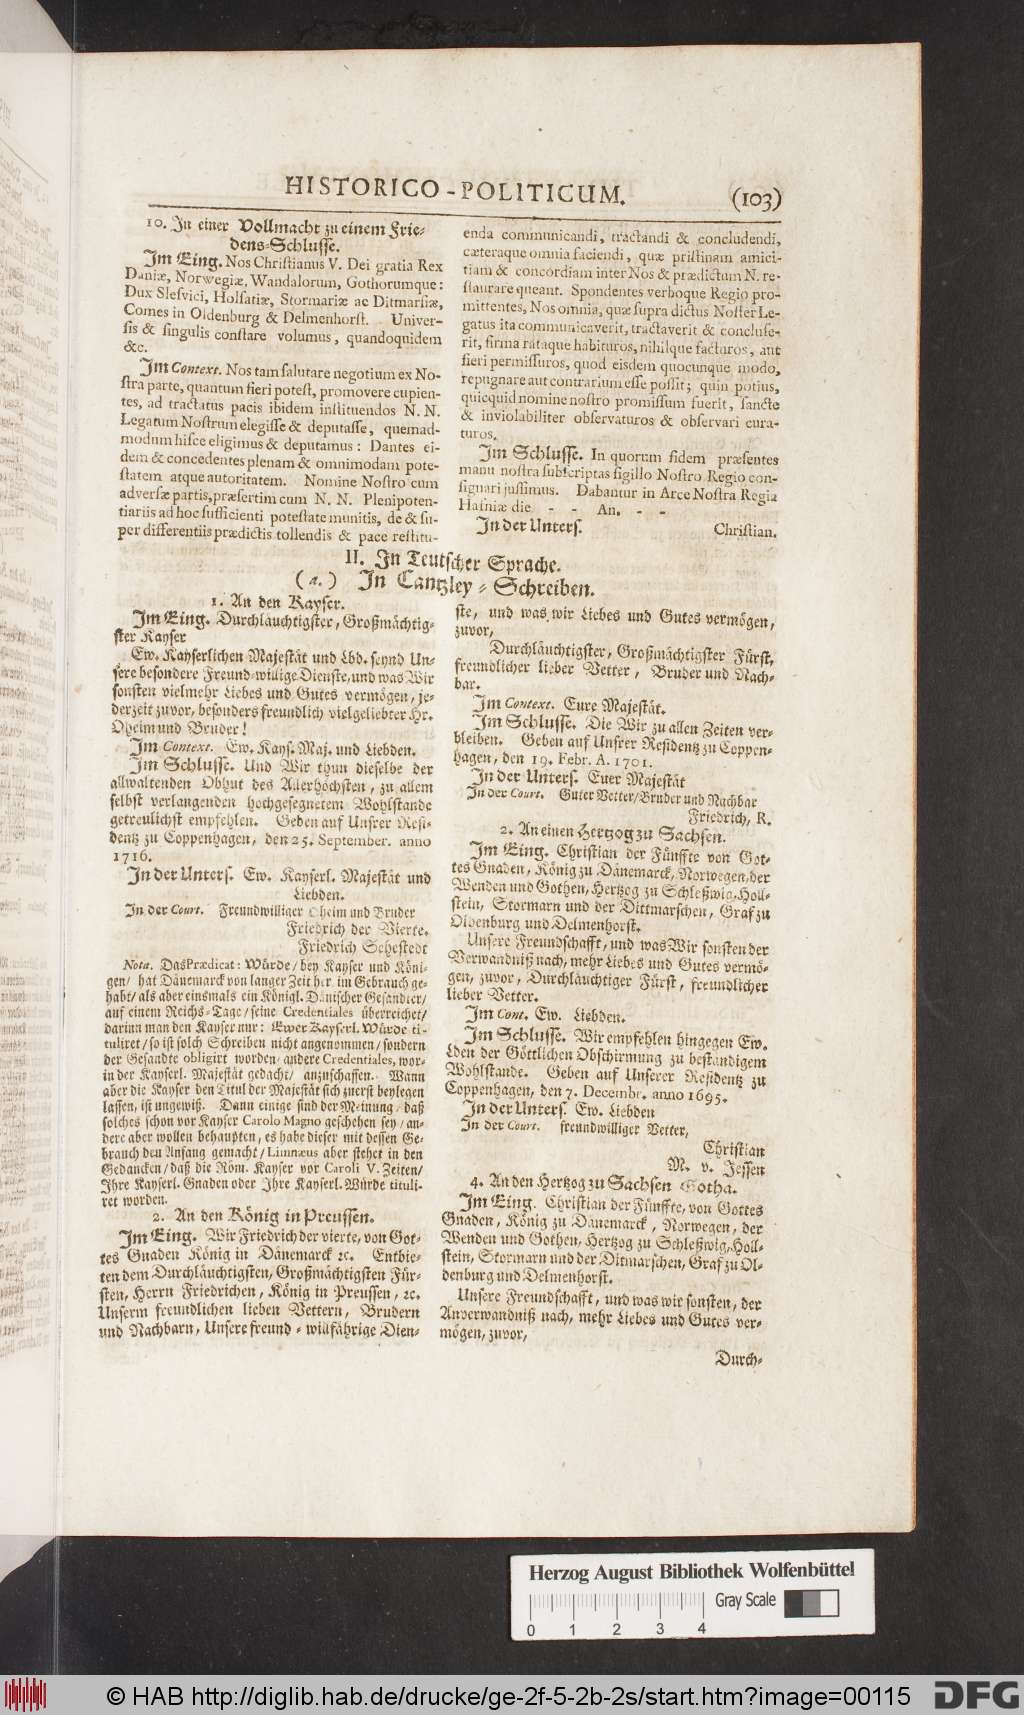 HISTORICO-POLITICUM. (103)
10. In einer Vollmacht zu einem Frie-
dens-Schlusse.
Im Eing. Nos Christianus V. Dei gratia Rex
Daniæ, Norwegiæ, Wandalorum, Gothorumque:
Dux Slesvici, Holsatiæ, Stormariæ ac Ditmarsiæ,
Comes in Oldenburg & Delmenhorst. Univer-
sis & singulis constare volumus, quandoquidem
&c.
Im Context. Nos tam salutare negotium ex No-
stra parte, quantum fieri potest, promovere cupien-
tes, ad tractatus pacis ibidem instituendos N. N.
Legatum Nostrum elegisse & deputasse, quemad-
modum hisce eligimus & deputamus: Dantes ei-
dem & concedentes plenam & omnimodam pote-
statem atque autoritatem. Nomine Nostro cum
adversæ partis, præsertim cum N. N. Plenipoten-
tiariis ad hoc sufficienti potestate munitis, de & su-
per differentiis prædictis tollendis & pace restitu-
enda communicandi, tractandi & concludendi,
cæteraque omnia faciendi, quæ pristinam amici-
tiam & concordiam inter Nos & prædictum N. re-
staurare queant. Spondentes verboque Regio pro-
mittentes, Nos omnia, quæ supra dictus Noster Le-
gatus ita communicaverit, tractaverit & concluse-
rit, firma rataque habituros, nihilque facturos, aut
fieri permissuros, quod eisdem quocunque modo,
repugnare aut contrarium esse possit; quin potius,
quicquid nomine nostro promissum fuerit, sancte
& inviolabiliter observaturos & observari cura-
turos.
Im Schlusse. In quorum fidem præsentes
manu nostra subscriptas sigillo Nostro Regio con-
signari jussimus. Dabantur in Arce Nostra Regia
Hafniæ die - - An. - -
In der Unters. Christian.
II. In Teutscher Sprache.
(a.) In Cantzley-Schreiben.
1. An den Kayser.
Im Eing. Durchläuchtigster, Großmächtig-
ster Kayser
Ew. Kayserlichen Majestät und Lbd. seynd Un-
sere besondere Freund-willige Dienste, und was Wir
sonsten vielmehr Liebes und Gutes vermögen, je-
derzeit zuvor, besonders freundlich vielgeliebter Hr.
Oheim und Bruder!
Im Context. Ew. Kays. Maj. und Liebden.
Im Schlusse. Und Wir thun dieselbe der
allwaltenden Obhut des Allerhöchsten, zu allem
selbst verlangenden hochgesegnetem Wohlstande
getreulichst empfehlen. Geben auf Unsrer Resi-
dentz zu Coppenhagen, den 25. September. anno
1716.
In der Unters. Ew. Kayserl. Majestät und
Liebden.
In der Court. Freundwilliger Oheim und Bruder
Friedrich der Vierte.
Friedrich Sehestedt
Nota. Das Prædicat: Würde/ bey Kayser und Köni-
gen/ hat Dänemarck von langer Zeit her im Gebrauch ge-
habt/ als aber einsmals ein Königl. Dänischer Gesandter/
auf einem Reichs-Tage/ seine Credentiales überreichet/
darinn man den Kayser nur: Ewer Kayserl. Würde ti-
tuliret/ so ist solch Schreiben nicht angenommen/ sondern
der Gesandte obligirt worden/ andere Credentiales, wor-
in der Kayserl. Majestät gedacht/ anzuschaffen. Wann
aber die Kayser den Titul der Majestät sich zuerst beylegen
lassen, ist ungewiß. Dann einige sind der Meinung/ daß
solches schon vor Kayser Carolo Magno geschehen sey/ an-
dere aber wollen behaupten, es habe dieser mit dessen Ge-
brauch den Anfang gemacht/ Limnæus aber stehet in den
Gedancken/ daß die Röm. Kayser vor Caroli V. Zeiten/
Ihre Kayserl. Gnaden oder Ihre Kayserl. Würde tituli-
ret worden.
2. An den König in Preussen.
Im Eing. Wir Friedrich der vierte, von Got-
tes Gnaden König in Dänemarck ꝛc. Entbie-
ten dem Durchläuchtigsten, Großmächtigsten Für-
sten, Herrn Friedrichen, König in Preussen, ꝛc.
Unserm freundlichen lieben Vettern, Brudern
und Nachbarn, Unsere freund-willfährige Dien-
ste, und was wir Liebes und Gutes vermögen,
zuvor,
Durchläuchtigster, Großmächtigster Fürst,
freundlicher lieber Vetter, Bruder und Nach-
bar.
Im Context. Eure Majestät.
Im Schlusse. Die Wir zu allen Zeiten ver-
bleiben. Geben auf Unsrer Residentz zu Coppen-
hagen, den 19. Febr. A. 1701.
In der Unters. Euer Majestät
In der Court. Guter Vetter/ Bruder und Nachbar
Friedrich, R.
2. An einen Hertzog zu Sachsen.
Im Eing. Christian der Fünffte von Got-
tes Gnaden, König zu Dänemarck, Norwegen, der
Wenden und Gothen, Hertzog zu Schleßwig, Holl-
stein, Stormarn und der Dittmarschen, Graf zu
Oldenburg und Delmenhorst.
Unsere Freundschafft, und was Wir sonsten der
Verwandniß nach, mehr Liebes und Gutes vermö-
gen, zuvor, Durchläuchtiger Fürst, freundlicher
lieber Vetter.
Im Cont. Ew. Liebden.
Im Schlusse. Wir empfehlen hingegen Ew.
Lden der Göttlichen Obschirmung zu beständigem
Wohlstande. Geben auf Unserer Residentz zu
Coppenhagen, den 7. Decembr. anno 1695.
In der Unters. Ew. Liebden
In der Court. freundwilliger Vetter,
Christian
M. v. Jessen
4. An den Hertzog zu Sachsen Gotha.
Im Eing. Christian der Fünffte, von Gottes
Gnaden, König zu Dänemarck, Norwegen, der
Wenden und Gothen, Hertzog zu Schleßwig, Holl-
stein, Stormarn und der Ditmarschen, Graf zu Ol-
denburg und Delmenhorst.
Unsere Freundschafft, und was wir sonsten, der
Anverwandniß nach, mehr Liebes und Gutes ver-
mögen, zuvor,
Durch-
Herzog August Bibliothek Wolfenbüttel
Gray Scale
0 1 2 3 4
© HAB http://diglib.hab.de/drucke/ge-2f-5-2b-2s/start.htm?image=00115
DFG